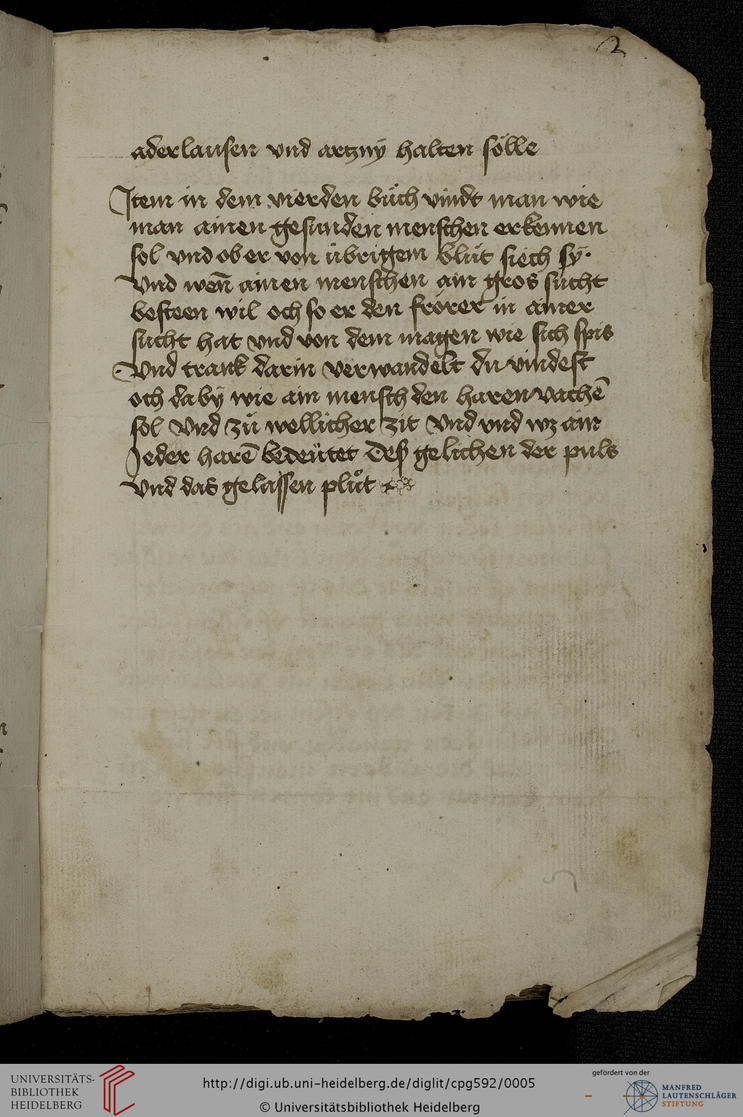 2
aderlausen vnd artzny halten sölle
Item in dem vierden bůch vindt man wie
man ainen gesunden menschen erkennen
sol vnd ob er von übrigem blůt siech sy·
Vnd weñ ainen menschen ain gros sucht
besteen wil och so er den frörer in ainer
sucht hat vnd von dem magen wie sich spis
Vnd trank darin verwandelt du vindest
och daby wie ain mensch den haren vachē
sol vnd zů wellicher zit vnd vnd wz ain
Jeder harē bedeütet Des gelichen der puls
vnd das gelassen plůt
UNIVERSITÄTS-
BIBLIOTHEK
HEIDELBERG
http://digi.ub.uni-heidelberg.de/diglit/cpg592/0005
© Universitätsbibliothek Heidelberg
gefördert von der
MANFRED
LAUTENSCHLÄGER
STIFTUNG